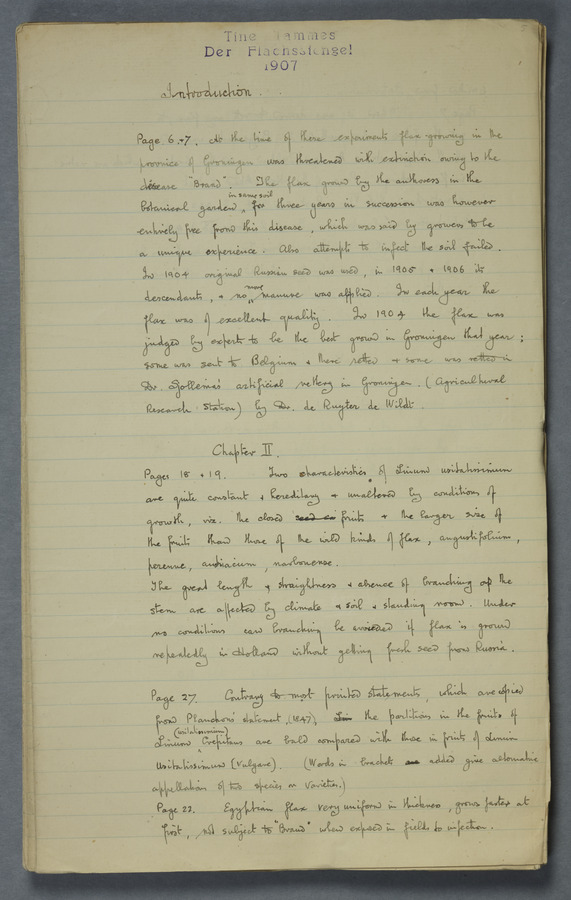 5
Tine Tammes
Der Flachsstengel
1907
Introduction.
Page 6.+7. At the time of these experiments flax growing in the
province of Groningen was threatened with extinction owing to the
disease "Brand". The flax grown by the authoress in the
in same soil
botanical garden, for three years in succession was however
entirely free from this disease, which was said by growers to be
a unique experience. Also attempts to infect the soil failed.
In 1904 original Russian seed was used, in 1905 + 1906 its
more
descendants, + no manure was applied. In each year the
flax was of excellent quality. In 1904 the flax was
judged by experts to be the best grown in Groningen that year;
some was sent to Belgium & there retted + some was retted in
Dr. artificial rettery in Groningen. (Agricultural
Research Station) by Dr. de Ruyter de Wildt.
Chapter II.
Pages 18 + 19. Two characteristics of Linum usitatissimum
are quite constant + hereditary + unaltered by conditions of
growth, viz. the closed fruits + the larger size of
the fruits than those of the wild kinds of flax, angustifolium,
perenne, austriacum, narbonense.
The great length, straightness + absence of branching of the
stem are affected by climate + soil + standing room. Under
no conditions can branching be avoided if flax is grown
repeatedly in Holland without getting fresh seed from Russia.
Page 27. Contrary to most printed statements, which are copied
from Planchon's statement, (1847), the partitions in the fruits of
(usitatissimum)
Linum Crepitans are bald compared with those in fruits of Linum
Usitatissimum [Vulgare). (Words in brackets added give alternative
appellation of two species or varieties.)
Page 22. Egyptian flax very uniform in thickness, grows faster at
first, not subject to "Brand" when exposed in fields to infection.